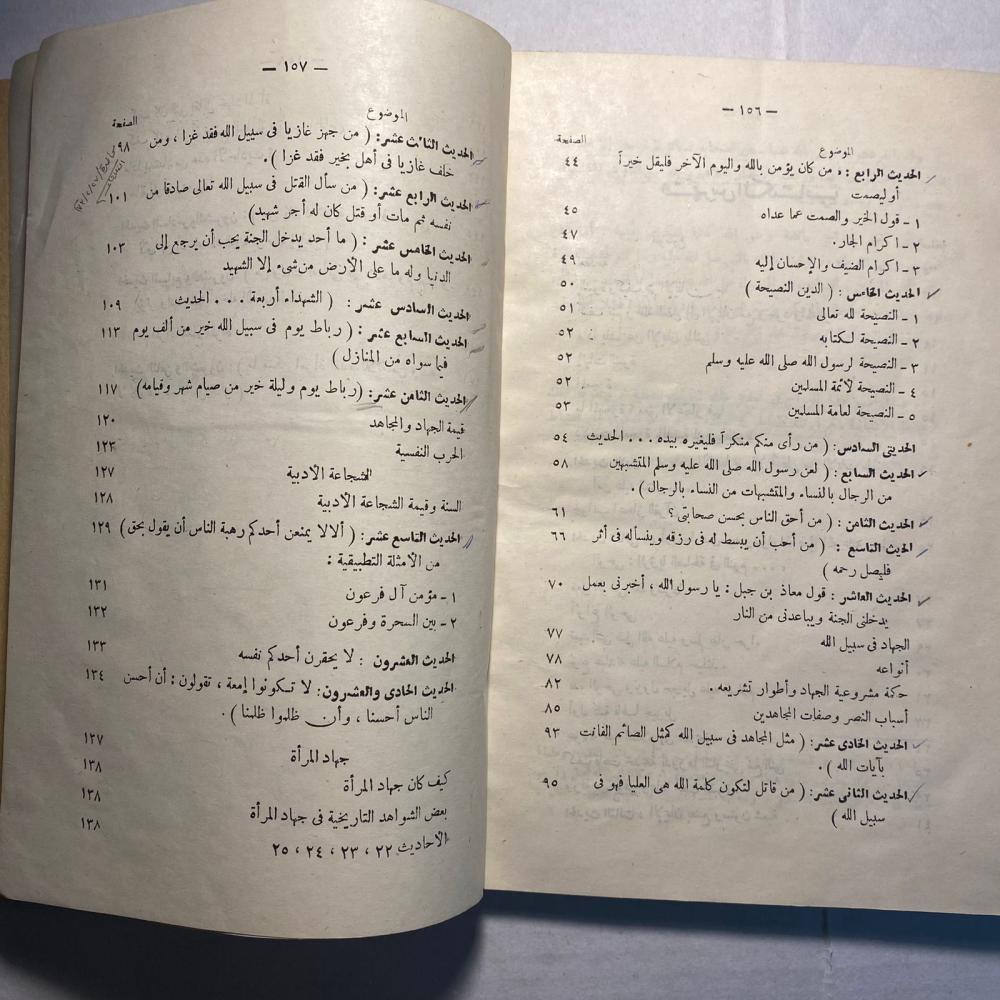 — ١٥٦ —
الموضوع الصفحة
الحديث الرابع : « من كان يؤمن بالله واليوم الآخر فليقل خيراً ٤٤
أو ليصمت
١ - قول الخير والصمت عما عداه ٤٥
٢ - اكرام الجار. ٤٧
٣ - اكرام الضيف والإحسان إليه ٤٩
الحديث الخامس : ( الدين النصيحة ) ٥٠
١ - النصيحة لله تعالى ٥١
٢ - النصيحة لكتابه ٥٢
٣ - النصيحة لرسول الله صلى الله عليه وسلم ٥٢
٤ - النصيحة لأئمة المسلمين ٥٢
٥ - النصيحة لعامة المسلمين ٥٣
الحديث السادس: ( من رأى منكم منكراً فليغيره بيده ... الحديث ٥٤
الحديث السابع : ( لعن رسول الله صلى الله عليه وسلم المتشبهين ٥٨
من الرجال بالنساء والمتشبهات من النساء بالرجال ) .
الحديث الثامن : ( من أحق الناس بحسن صحابتى ؟ ٦١
الحديث التاسع : ( من أحب أن يبسط له فى رزقه وينسأله فى أثر ٦٦
فليصل رحمه )
الحديث العاشر : قول معاذ بن جبل : يا رسول الله ، أخبرنى بعمل ٧٠
يدخلنى الجنة ويباعدنى من النار
الجهاد فى سبيل الله ٧٧
أنواعه ٧٨
حكمة مشروعية الجهاد وأطوار تشريعه . ٨٢
أسباب النصر وصفات المجاهدين ٨٥
الحديث الحادى عشر: ( مثل المجاهد فى سبيل الله كمثل الصائم القانت ٩٣
بآيات الله ) .
الحديث الثانى عشر: ( من قاتل لتكون كلمة الله هى العليا فهو فى ٩٥
سبيل الله )
— ١٥٧ —
الموضوع الصفحة
الحديث الثالث عشر: ( من جهز غازيا فى سبيل الله فقد غزا ، ومن ٩٨
خلف غازيا فى أهل بخير فقد غزا ) .
الحديث الرابع عشر : ( من سأل القتل فى سبيل الله تعالى صادقا من ١٠١
نفسه ثم مات أو قتل كان له أجر شهيد)
الحديث الخامس عشر : ( ما أحد يدخل الجنة يحب أن يرجع إلى ١٠٣
الدنيا وله ما على الأرض من شىء إلا الشهيد
الحديث السادس عشر : ( الشهداء أربعة ... الحديث ١٠٩
الحديث السابع عشر : ( رباط يوم فى سبيل الله خير من ألف يوم ١١٣
فيما سواه من المنازل )
الحديث الثامن عشر: (رباط يوم وليلة خير من صيام شهر وقيامه) ١١٧
قيمة الجهاد والمجاهد ١٢٠
الحرب النفسية ١٢٣
الشجاعة الأدبية ١٢٧
السنة وقيمة الشجاعة الأدبية ١٢٨
الحديث التاسع عشر: ( ألا لا يمنعن أحدكم رهبة الناس أن يقول بحق) ١٢٩
من الأمثلة التطبيقية :
١ - مؤمن آل فرعون ١٣١
٢ - بين السحرة وفرعون ١٣٢
الحديث العشرون : لا يحقرن أحدكم نفسه ١٣٣
الحديث الحادى والعشرون: لا تكونوا إمعة ، تقولون : أن أحسن ١٣٤
الناس أحسنا ، وأن ظلموا ظلمنا ) .
جهاد المرأة ١٣٧
كيف كان جهاد المرأة ١٣٨
بعض الشواهد التاريخية فى جهاد المرأة ١٣٨
الأحاديث ٢٢ ، ٢٣ ، ٢٤ ، ٢٥ ١٣٨